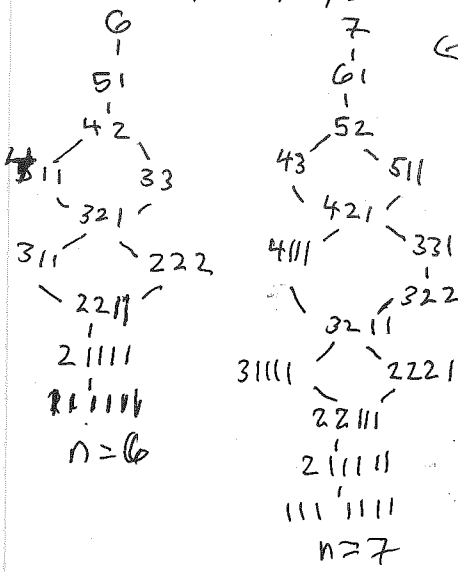 6
51
42
411 33
321
311 222
2211
21111
111111
n=6
7
61
52
43 511
421
4111 331
322
3211
31111 2221
22111
211111
1111111
n=7